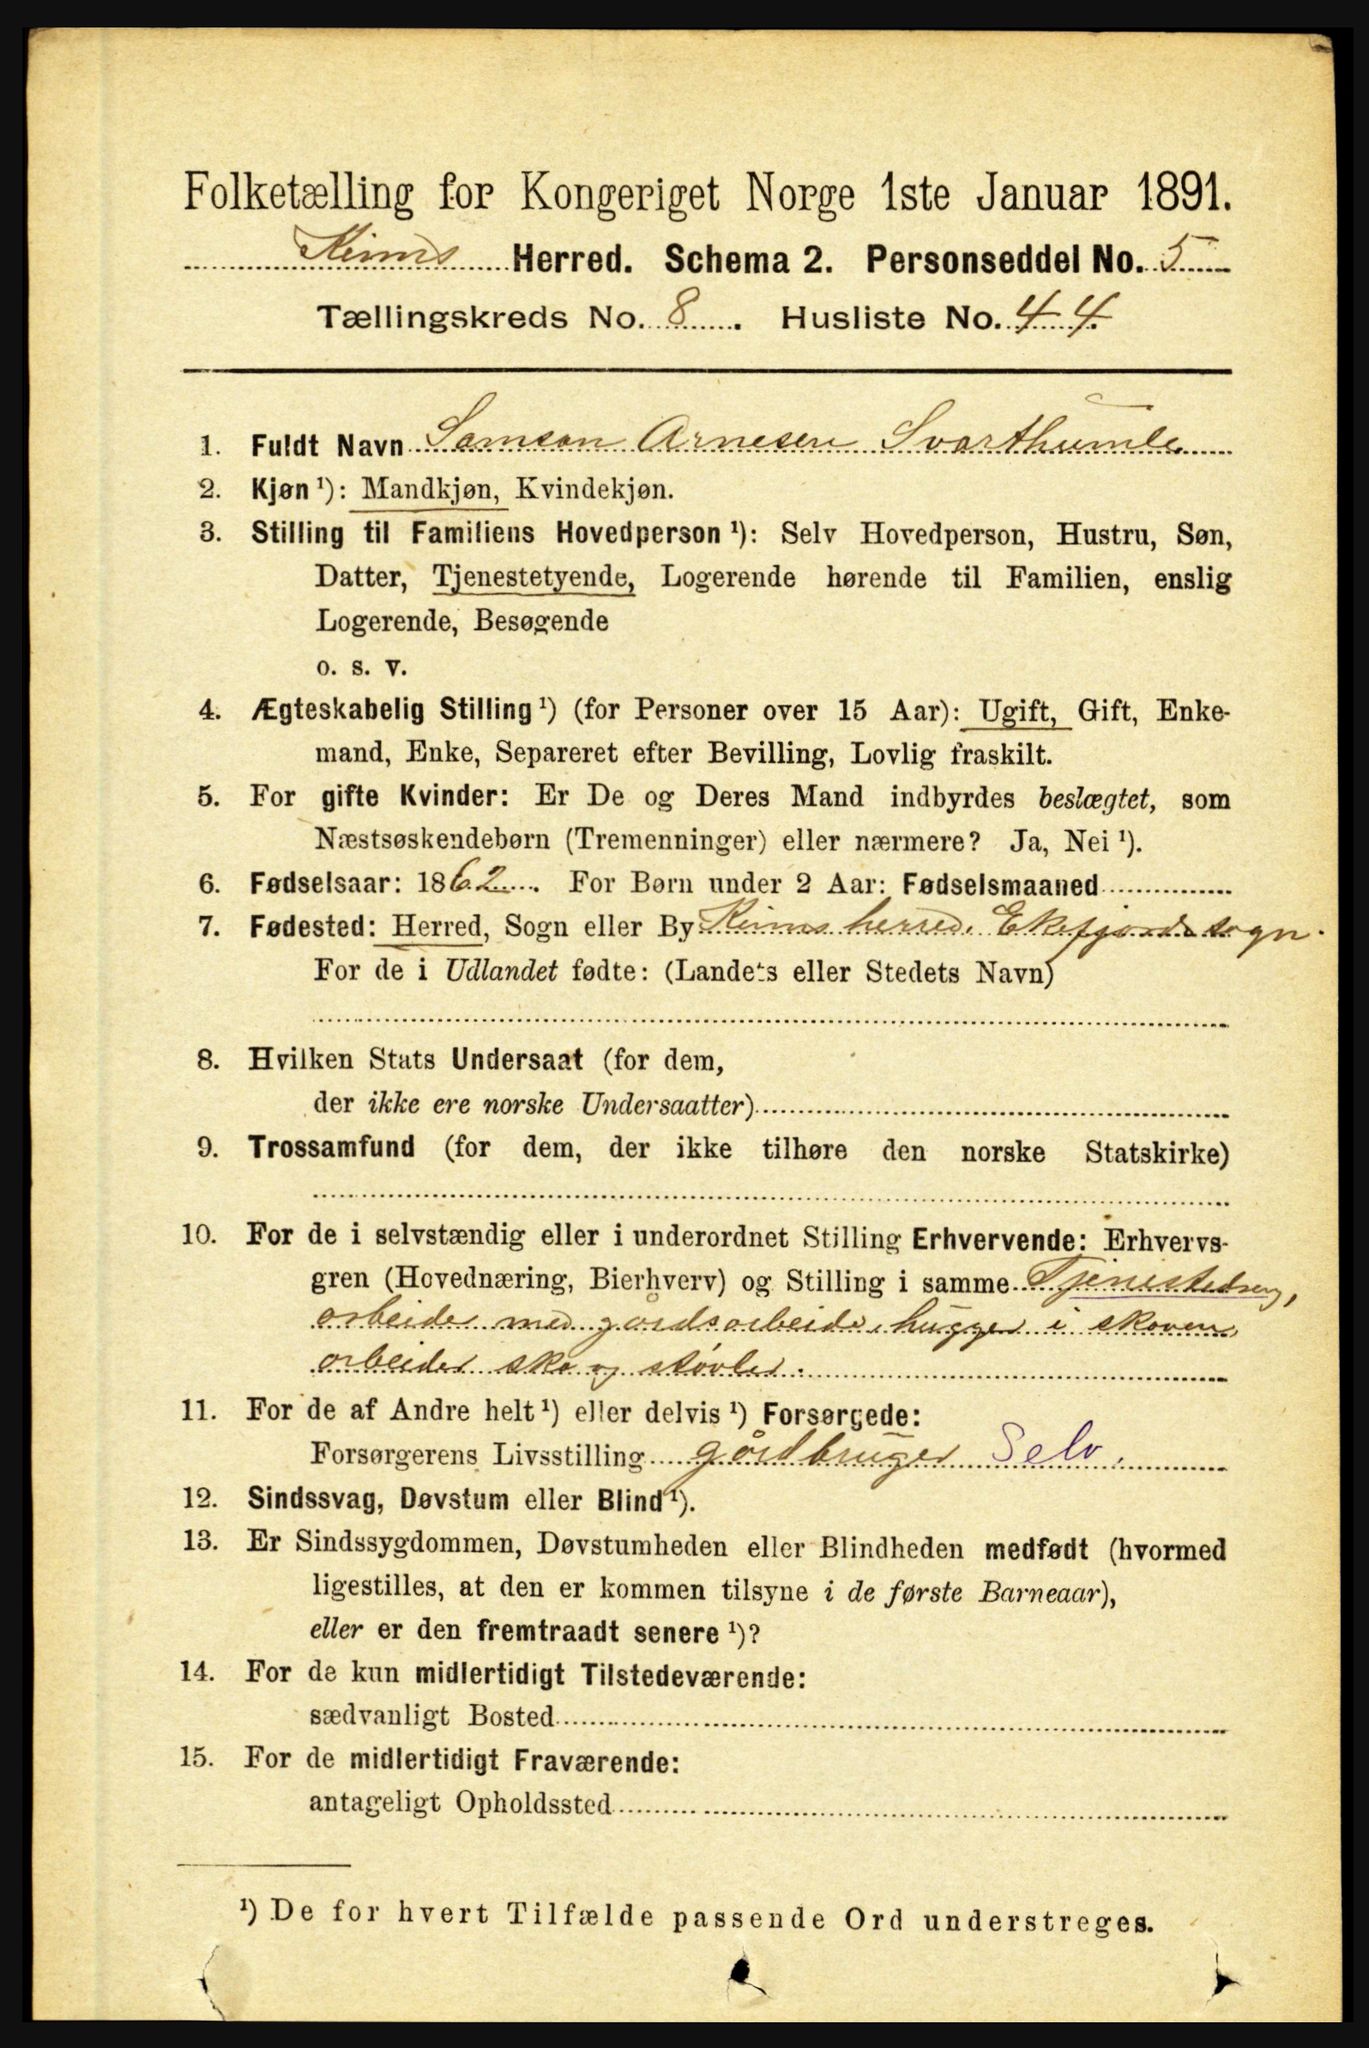 Folketælling for Kongeriget Norge 1ste Januar 1891.
Kinns Herred. Schema 2. Personseddel No. 5
Tællingskreds No. 8. Husliste No. 44.
1. Fuldt Navn Samson Arnesen Svarthumle
2. Kjøn ¹): Mandkjøn, Kvindekjøn.
3. Stilling til Familiens Hovedperson ¹): Selv Hovedperson, Hustru, Søn,
Datter, Tjenestetyende, Logerende hørende til Familien, enslig
Logerende, Besøgende
o. s. v.
4. Ægteskabelig Stilling ¹) (for Personer over 15 Aar): Ugift, Gift, Enke-
mand, Enke, Separeret efter Bevilling, Lovlig fraskilt.
5. For gifte Kvinder: Er De og Deres Mand indbyrdes beslægtet, som
Næstsøskendebørn (Tremenninger) eller nærmere? Ja, Nei ¹).
6. Fødselsaar: 1862. For Børn under 2 Aar: Fødselsmaaned
7. Fødested: Herred, Sogn eller By Kinns herred. Ekefjords sogn.
For de i Udlandet fødte: (Landets eller Stedets Navn)
8. Hvilken Stats Undersaat (for dem,
der ikke ere norske Undersaatter)
9. Trossamfund (for dem, der ikke tilhøre den norske Statskirke)
10. For de i selvstændig eller i underordnet Stilling Erhvervende: Erhvervs-
gren (Hovednæring, Bierhverv) og Stilling i samme Tjenestedreng,
arbeider med gårdsarbeide, hugger i skoven,
arbeider sko og støvler.
11. For de af Andre helt ¹) eller delvis ¹) Forsørgede:
Forsørgerens Livsstilling gårdbruger Selv.
12. Sindssvag, Døvstum eller Blind ¹).
13. Er Sindssygdommen, Døvstumheden eller Blindheden medfødt (hvormed
ligestilles, at den er kommen tilsyne i de første Barneaar),
eller er den fremtraadt senere ¹)?
14. For de kun midlertidigt Tilstedeværende:
sædvanligt Bosted
15. For de midlertidigt Fraværende:
antageligt Opholdssted
¹) De for hvert Tilfælde passende Ord understreges.